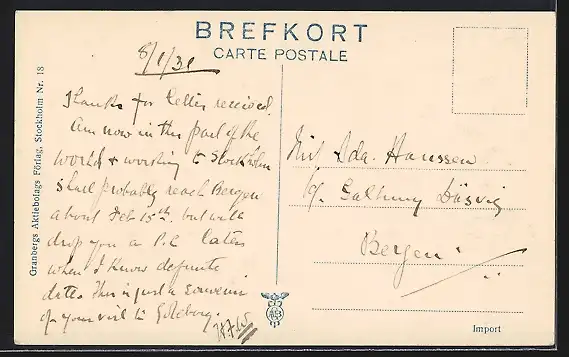 BREFKORT
CARTE POSTALE
8/1/31
Thanks for letter received.
Am now in this part of the
world & working to Stockholm
shall probably reach Bergen
about Feb 15th. but will
drop you a P.C later
when I know definite
date. This is just a souvenir
of your visit to Goteborg.
Ida. Hanssen
Bergen
Granbergs Aktiebolags Förlag, Stockholm Nr. 18
Import